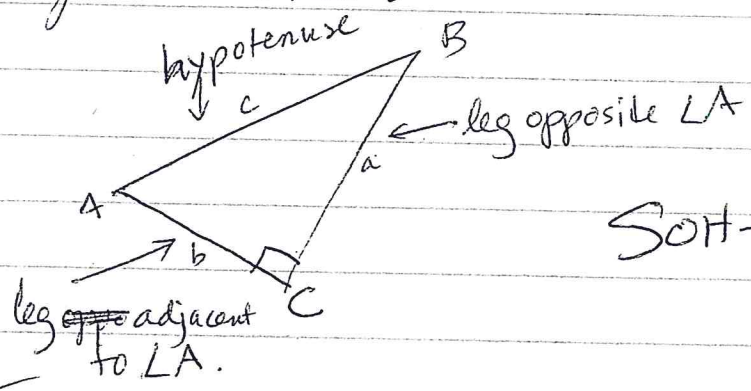 hypotenuse
B
c
leg opposite ∠A
a
A
SOH-
b
C
leg adjacent
to ∠A.